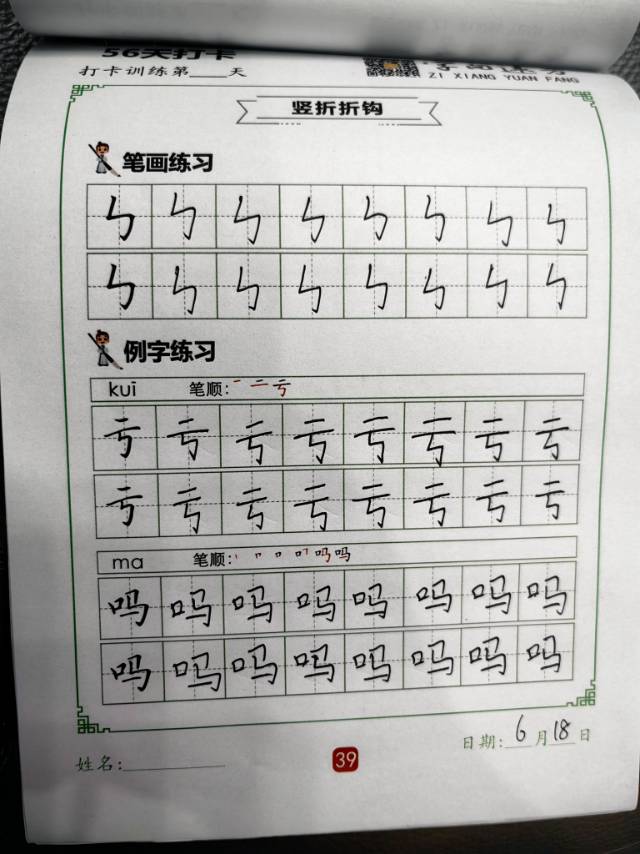 56天打卡
打卡训练第____天
ZI XIANG YUAN FANG
竖折折钩
笔画练习
㇉ ㇉ ㇉ ㇉ ㇉ ㇉ ㇉ ㇉
㇉ ㇉ ㇉ ㇉ ㇉ ㇉ ㇉ ㇉
例字练习
kuī 笔顺: 一 二 亏
亏 亏 亏 亏 亏 亏 亏 亏
亏 亏 亏 亏 亏 亏 亏 亏
ma 笔顺: 吗
吗 吗 吗 吗 吗 吗 吗 吗
吗 吗 吗 吗 吗 吗 吗 吗
日期: 6 月 18 日
姓名:
39